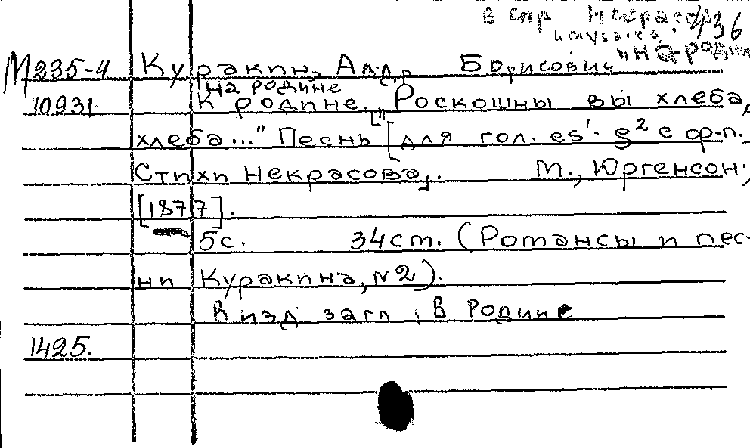 в спр. Некрасов 436
музыка:
"На родине
М 235-4 Куракин, Алдр Борисович
на родине
10931 К родине. ["Роскошны вы хлеба,
хлеба..." Песнь [для гол. es'-g² с ф-п.
Стихи Некрасова]. М., Юргенсон,
[1877].
5с. 34см. (Романсы и пес-
ни Куракина, N2).
В изд. загл.: В Родине
1425.